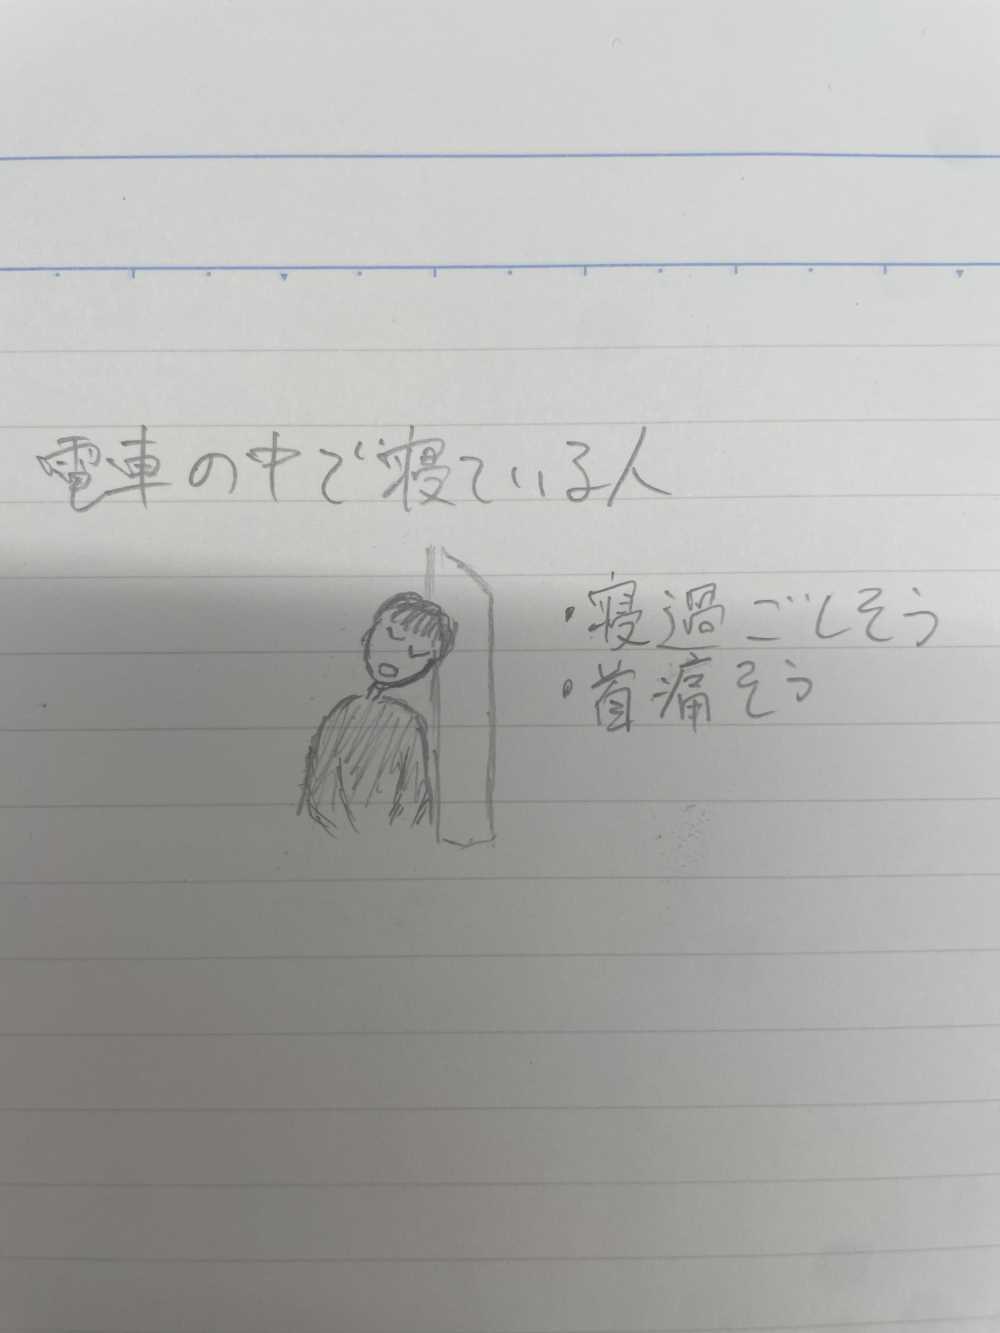 電車の中で寝ている人
・寝過ごしそう
・首痛そう